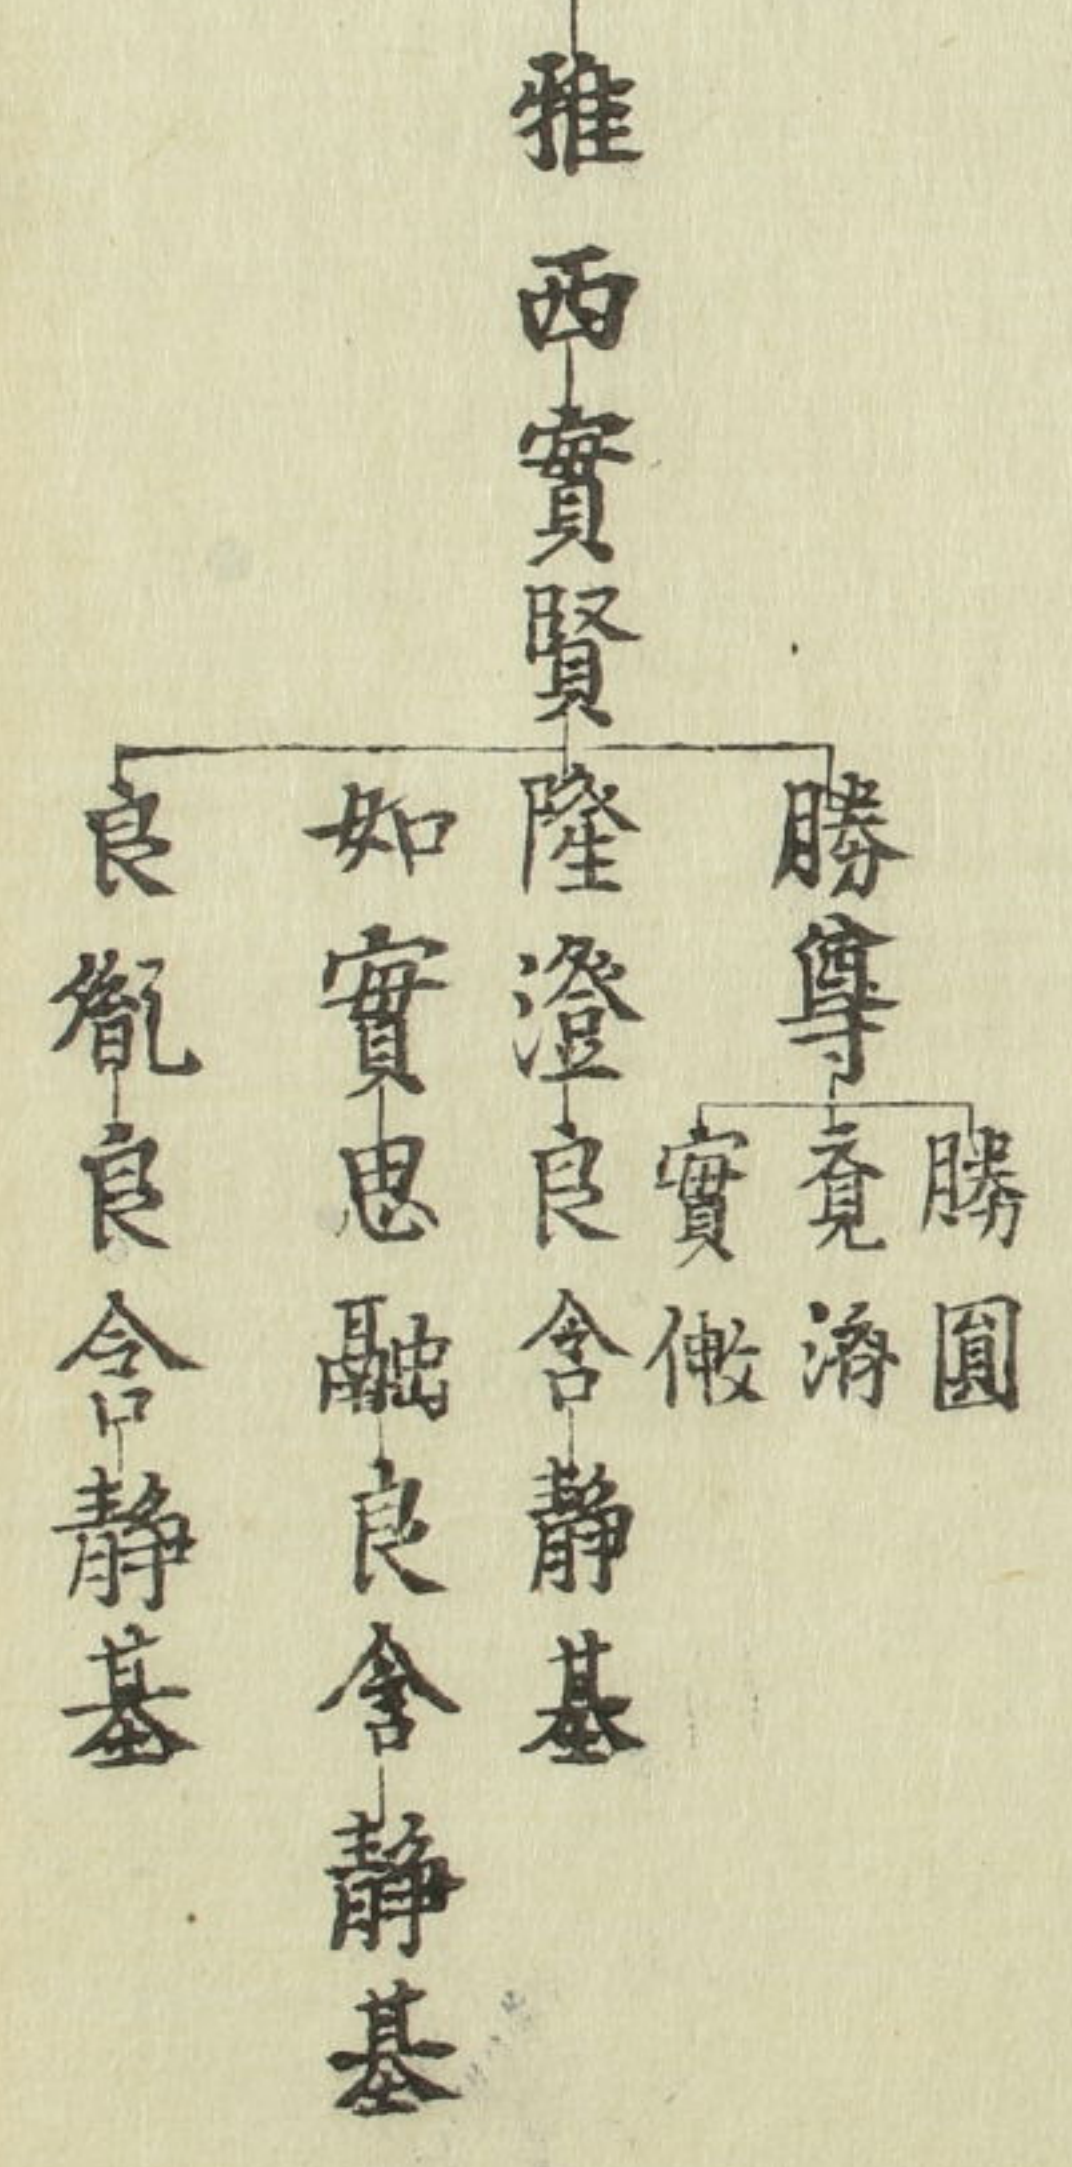 雅西
實賢
勝尊
勝圓
竟濟
實俊
隆澄
良含
靜基
如實
思融
良含
靜基
良胤
良含
靜基